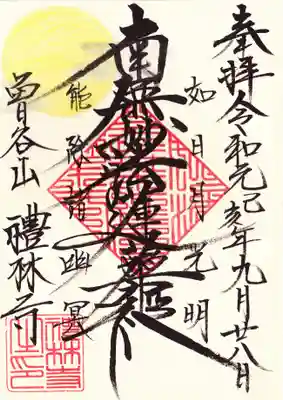 奉拝令和元己亥年九月廿八日
如日月光明
南無妙法蓮華経
能除諸幽冥
曽谷山
禮林寺